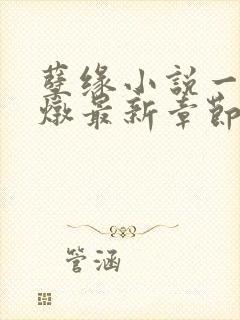 孽缘小說一
燉最新章節
管涵